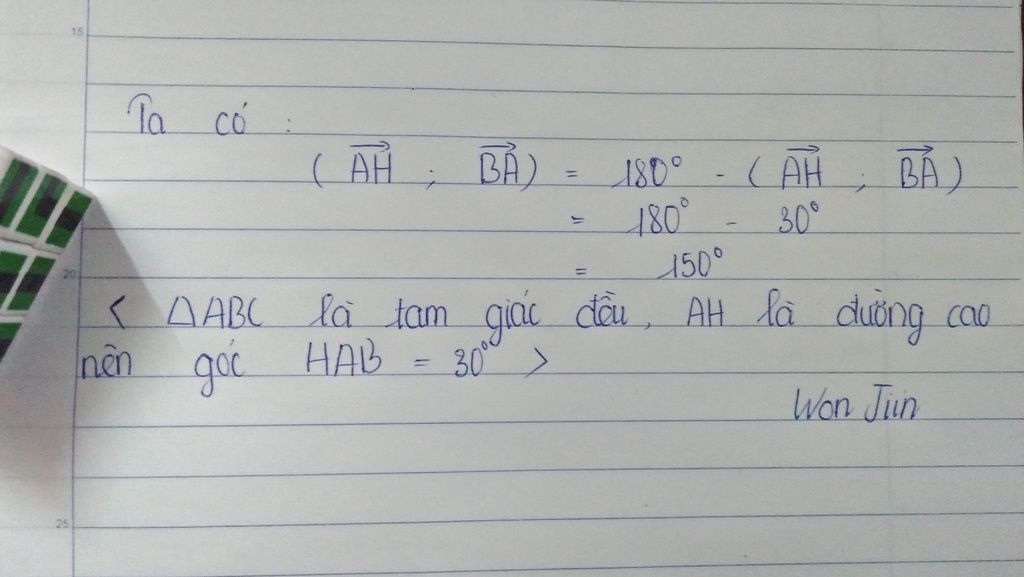 15
Ta có :
( AH⃗ ; BA⃗ ) = 180° - ( AH⃗ ; BA⃗ )
= 180° - 30°
= 150°
20
< △ABC là tam giác đều, AH là đường cao
nên góc HAB = 30° >
Won Jun
25